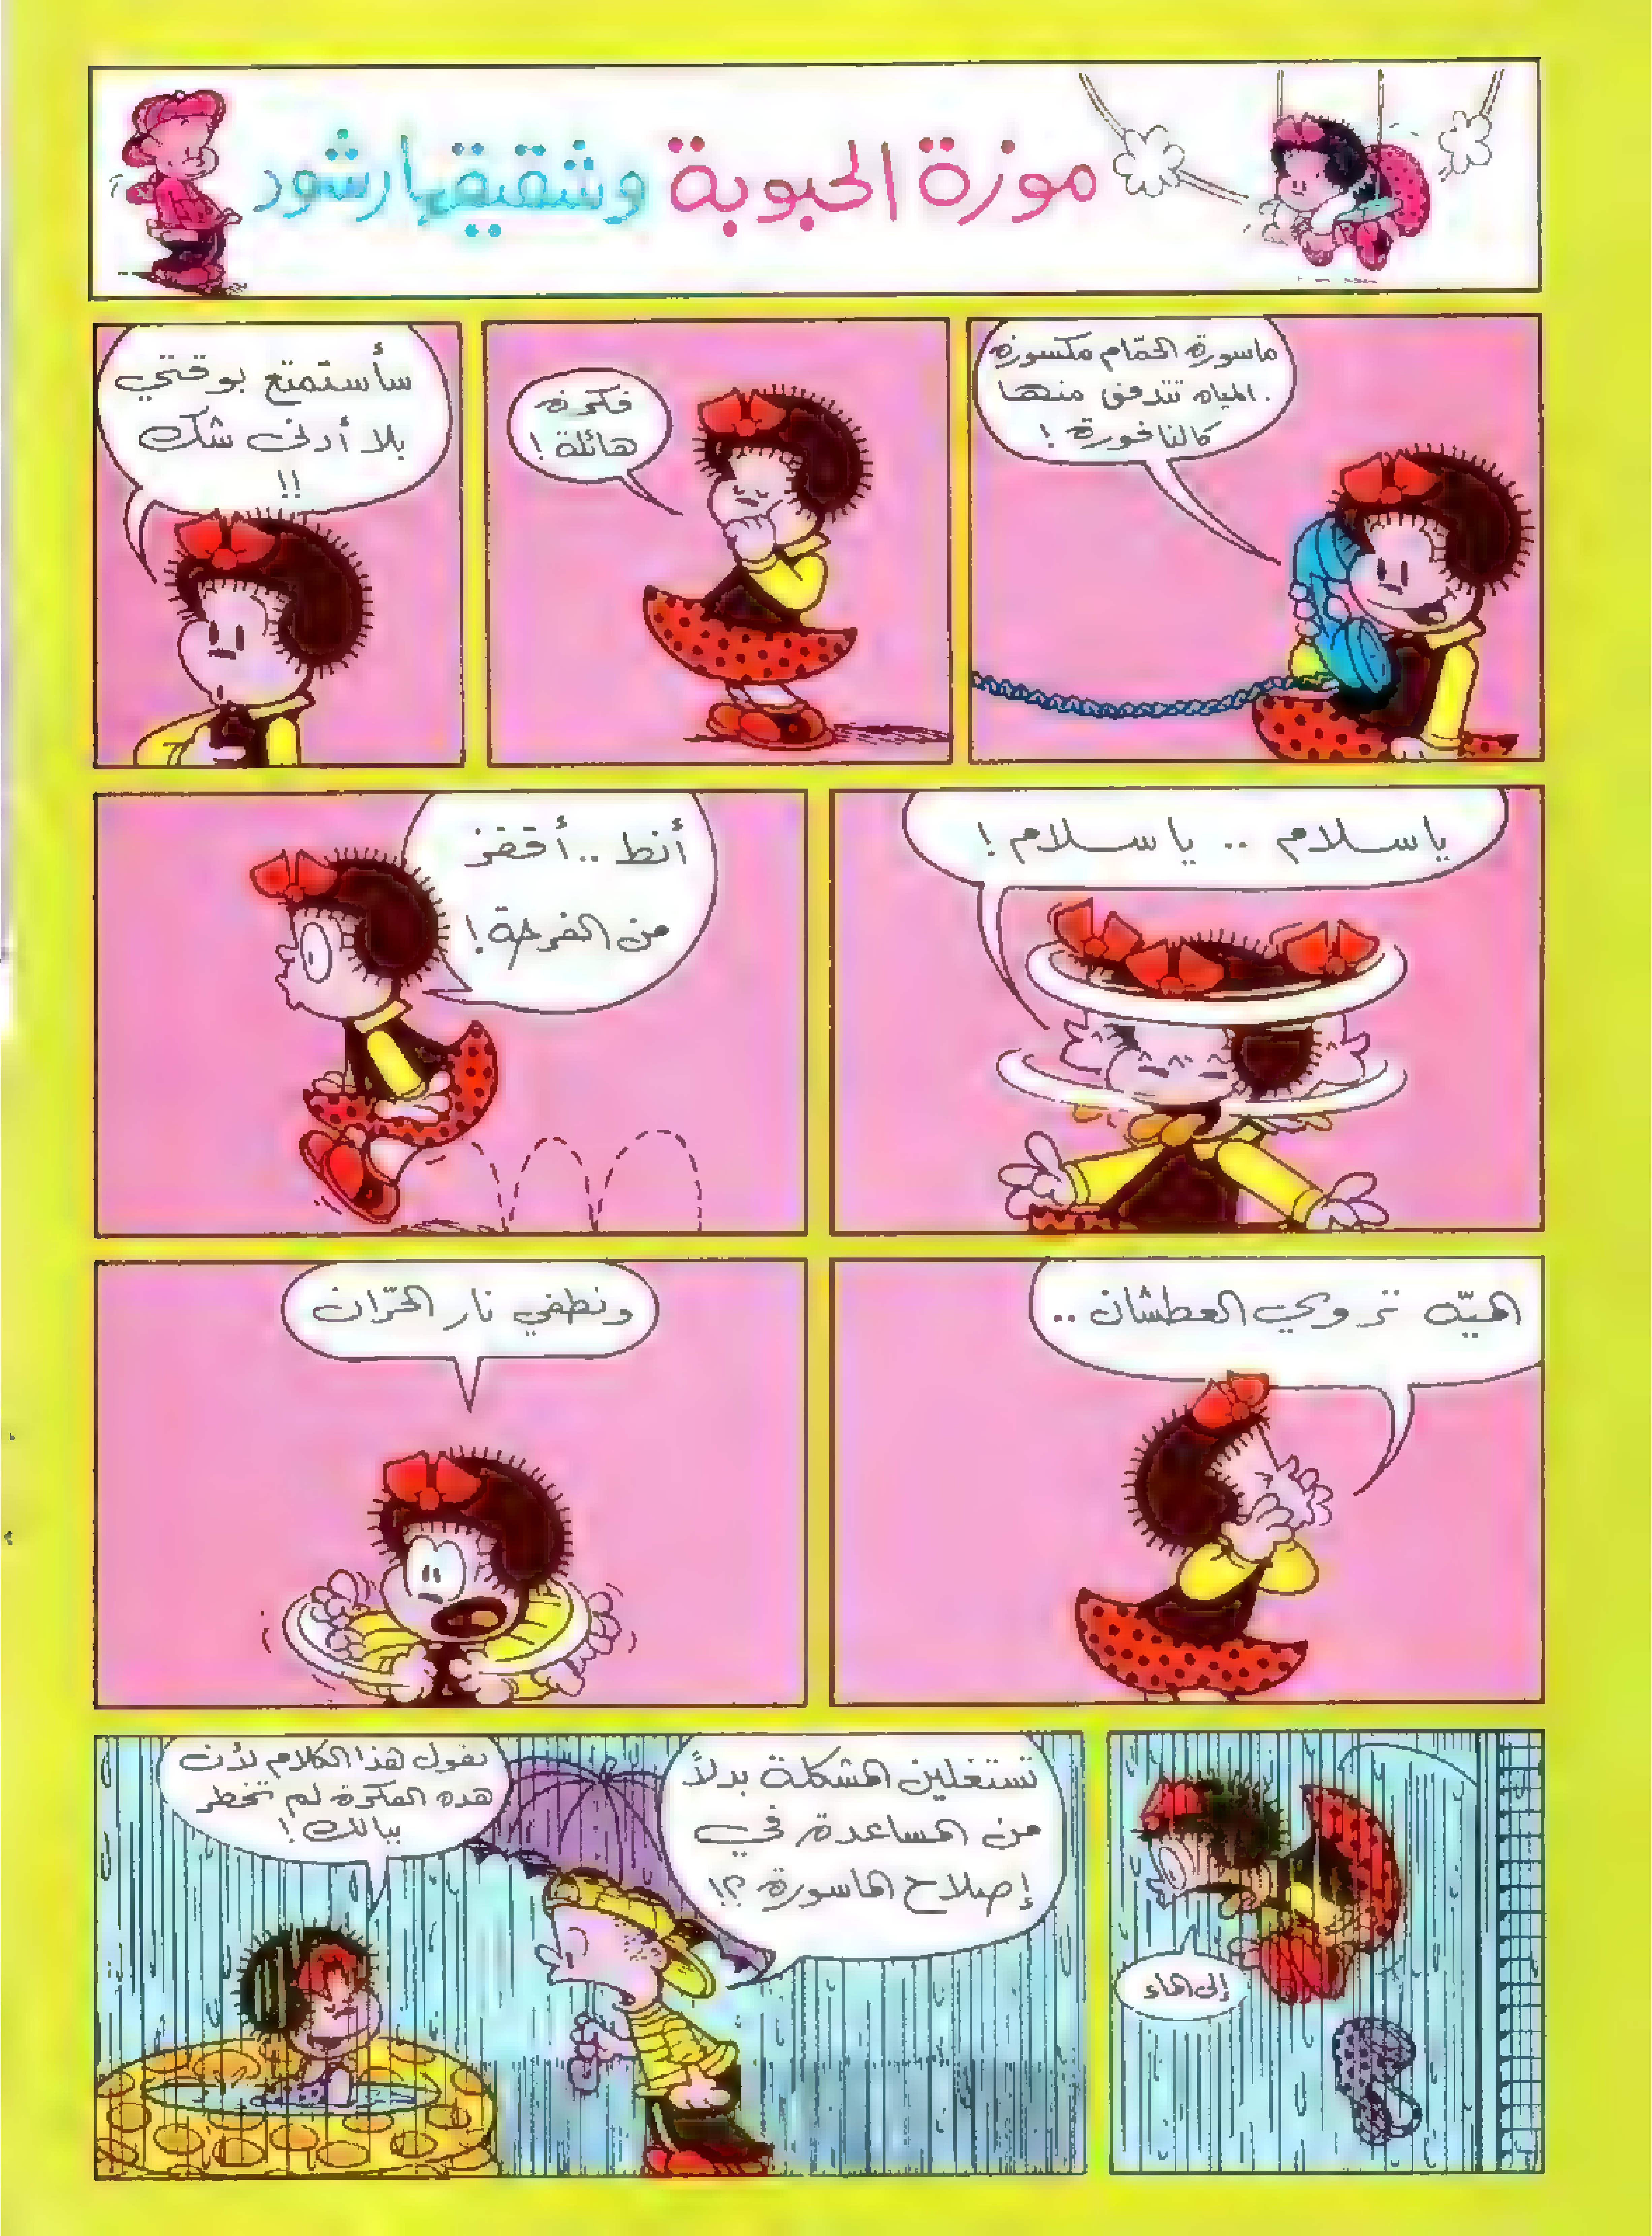 موزة الحبوبة وشقيقها رشود
ماسورة الحمّام مكسورة
. المياه تتدفق منها
كالنافورة !
فكرة
هائلة !
سأستمتع بوقتي
بلا أدنى شك
!!
يا سلام .. يا سلام !
أنط .. أقفز
من الفرحة !
الميّه تروي العطشان ..
ونطفي نار الحرّان
إلى الماء
تستغلين المشكلة بدلاً
من المساعدة في
إصلاح الماسورة ؟!
تقول هذا الكلام لأن
هذه الفكرة لم تخطر
ببالك !